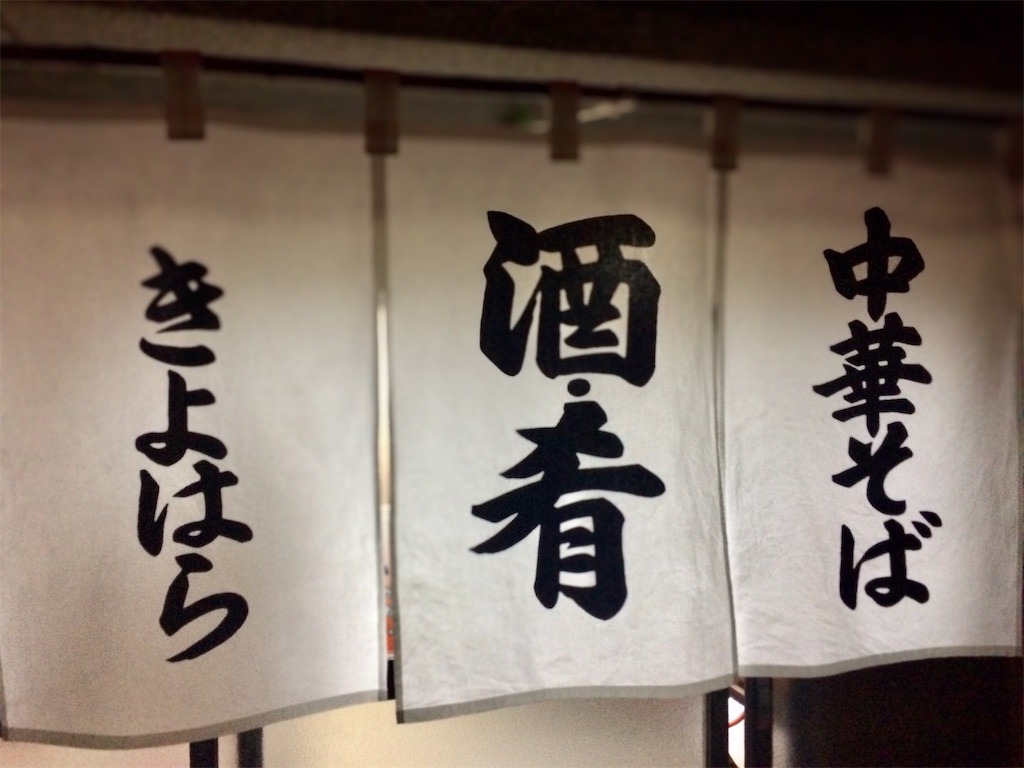 中華そば
酒・肴
きよはら